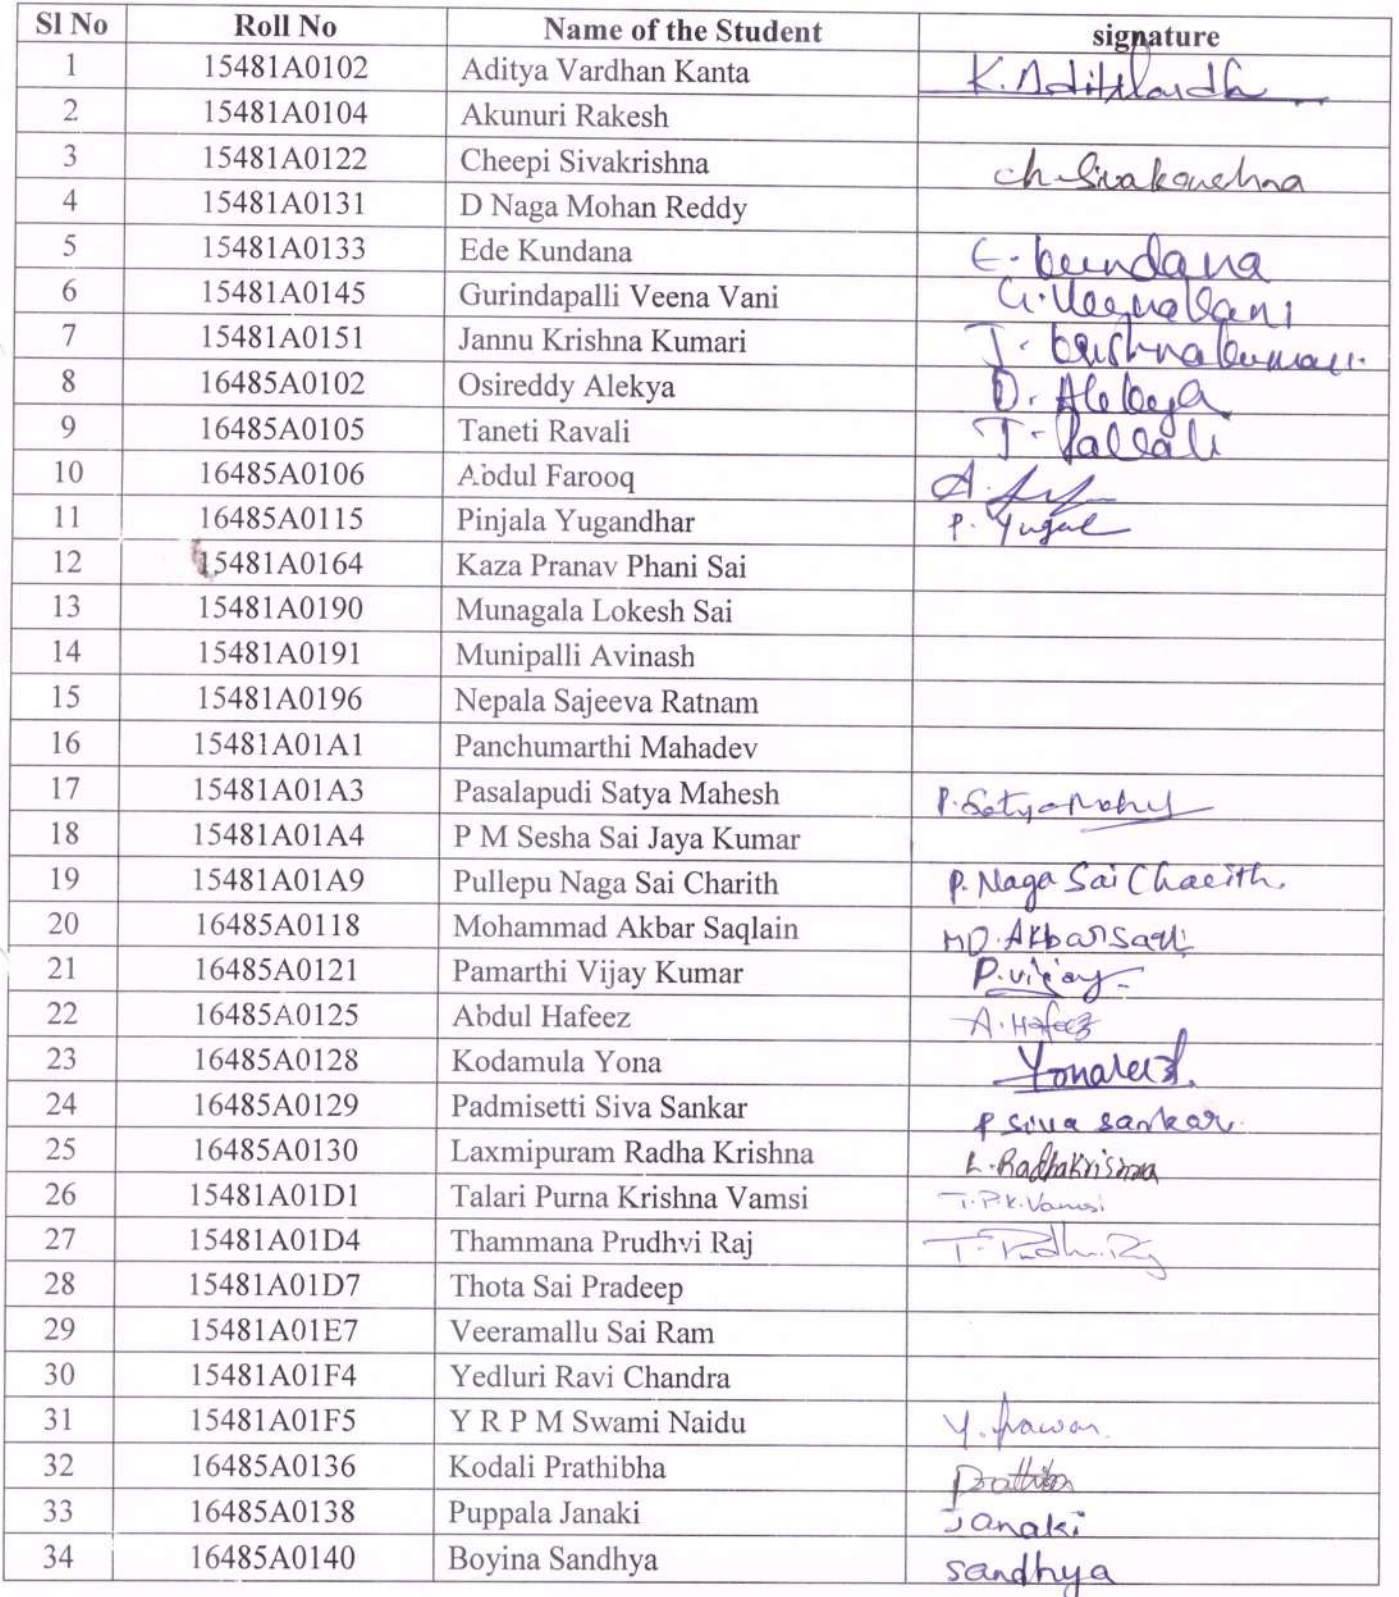 Sl No Roll No Name of the Student signature
1 15481A0102 Aditya Vardhan Kanta
2 15481A0104 Akunuri Rakesh
3 15481A0122 Cheepi Sivakrishna
4 15481A0131 D Naga Mohan Reddy
5 15481A0133 Ede Kundana E. kundana
6 15481A0145 Gurindapalli Veena Vani G. Veena Vani
7 15481A0151 Jannu Krishna Kumari J. krishna kumari.
8 16485A0102 Osireddy Alekya O. Alekya
9 16485A0105 Taneti Ravali T.
10 16485A0106 Abdul Farooq A.
11 16485A0115 Pinjala Yugandhar P.
12 15481A0164 Kaza Pranav Phani Sai
13 15481A0190 Munagala Lokesh Sai
14 15481A0191 Munipalli Avinash
15 15481A0196 Nepala Sajeeva Ratnam
16 15481A01A1 Panchumarthi Mahadev
17 15481A01A3 Pasalapudi Satya Mahesh P. Satya
18 15481A01A4 P M Sesha Sai Jaya Kumar
19 15481A01A9 Pullepu Naga Sai Charith P. Naga Sai Charith.
20 16485A0118 Mohammad Akbar Saqlain MD. Akbar
21 16485A0121 Pamarthi Vijay Kumar P. vijay
22 16485A0125 Abdul Hafeez A. Hafeez
23 16485A0128 Kodamula Yona
24 16485A0129 Padmisetti Siva Sankar P siva sankar.
25 16485A0130 Laxmipuram Radha Krishna L. Radhakrishna
26 15481A01D1 Talari Purna Krishna Vamsi T. P. K. Vamsi
27 15481A01D4 Thammana Prudhvi Raj T.
28 15481A01D7 Thota Sai Pradeep
29 15481A01E7 Veeramallu Sai Ram
30 15481A01F4 Yedluri Ravi Chandra
31 15481A01F5 Y R P M Swami Naidu Y. Pawan.
32 16485A0136 Kodali Prathibha
33 16485A0138 Puppala Janaki Janaki
34 16485A0140 Boyina Sandhya sandhya